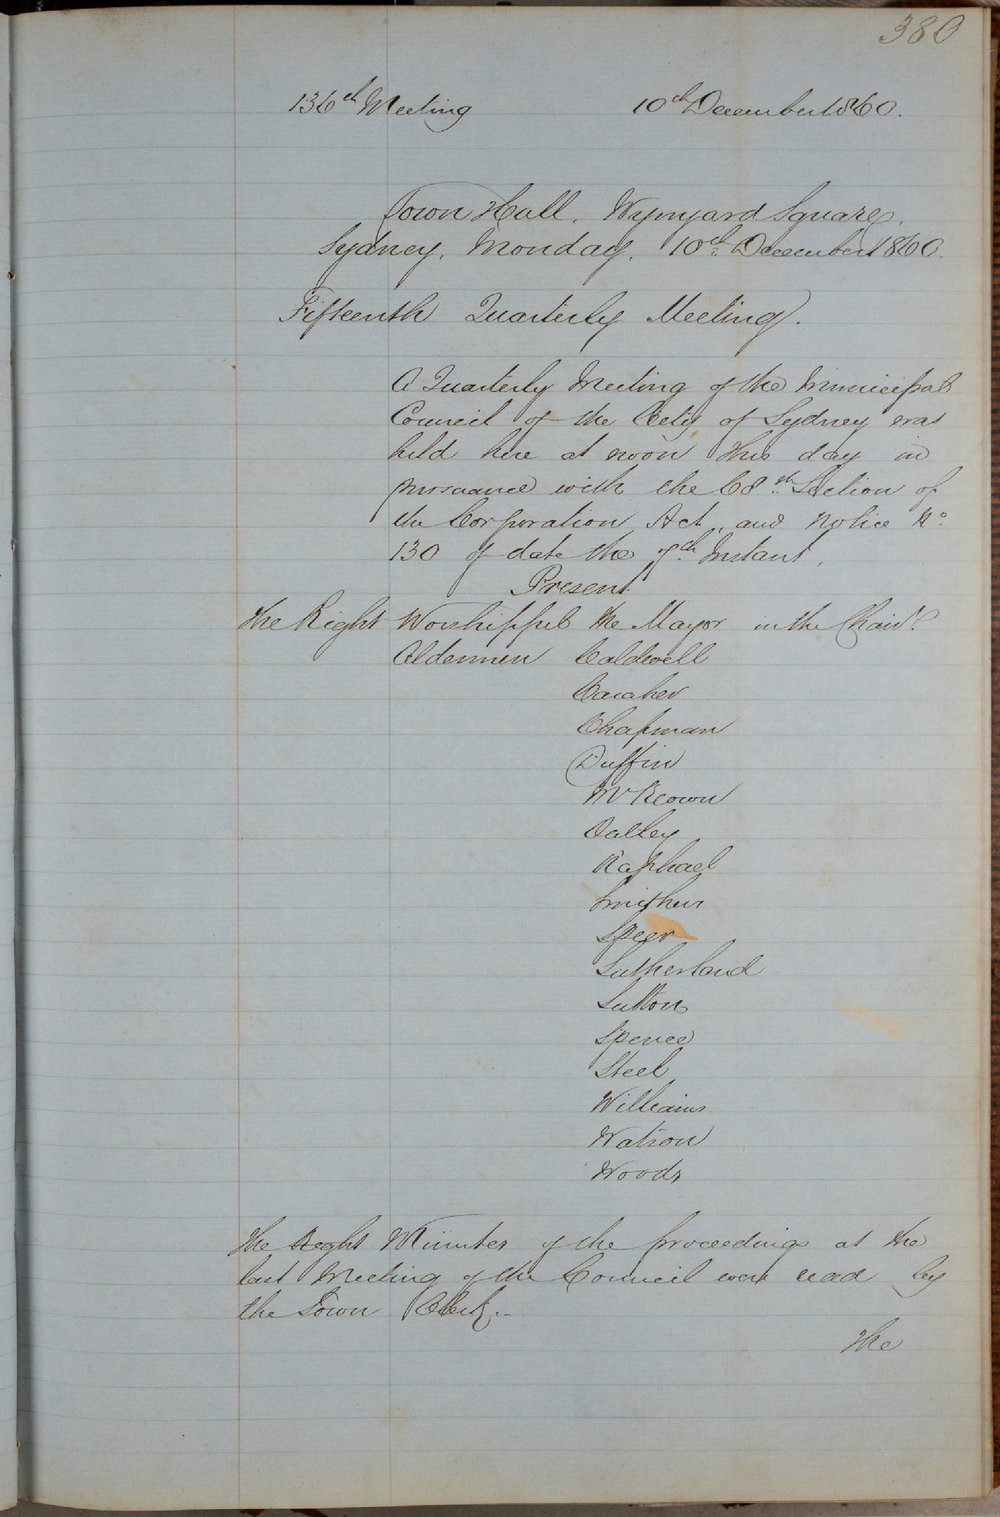 380
136th Meeting 10th December 1860.
Town Hall. Wynyard Square.
Sydney. Monday. 10th December 1860.
Fifteenth Quarterly Meeting.
A Quarterly Meeting of the Municipal
Council of the City of Sydney was
held here at noon this day in
pursuance with the 68th Section of
the Corporation Act, and Notice No.
130 of date the 7th Instant.
Present
The Right Worshipful the Mayor in the Chair.
Aldermen Caldwell
Caraher
Chapman
Duffin
McKeown
Oatley
Raphael
Smithers
Speer
Sutherland
Sutton
Spence
Steel
Williams
Watson
Woods
The Right Minutes of the proceedings at the
last Meeting of the Council were read by
the Town Clerk..
The